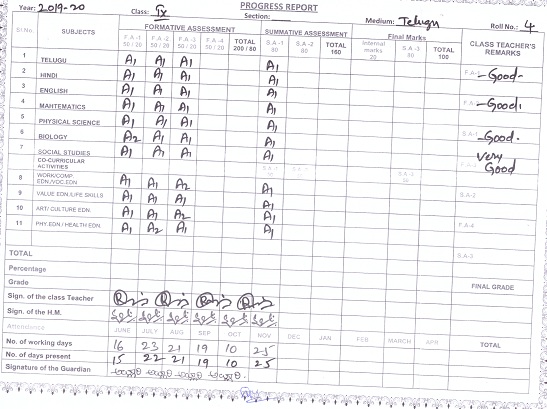 PROGRESS REPORT
Year: 2019-20 Class: IX Section: Medium: Telugu Roll No.: 4
Sl No. SUBJECTS FORMATIVE ASSESSMENT SUMMATIVE ASSESSMENT Final Marks CLASS TEACHER'S REMARKS
F.A -1 50 / 20 F.A -2 50 / 20 F.A -3 50 / 20 F.A -4 50 / 20 TOTAL 200 / 80 S.A -1 80 S.A -2 80 TOTAL 160 Internal marks 20 S.A -3 80 TOTAL 100
1 TELUGU A1 A1 A1 A1 F.A-1 -Good-
2 HINDI A1 A1 A1 A1
3 ENGLISH A1 A1 A1 A1 -Good.
4 MAHTEMATICS A1 A1 A1 A1
5 PHYSICAL SCIENCE A1 A1 A1 A1 S.A-1 -Good.
6 BIOLOGY A2 A1 A1 A1
7 SOCIAL STUDIES A1 A1 A1 A1 Very Good
CO-CURRICULAR ACTIVITIES
8 WORK/COMP. EDN./VOC.EDN A1 A1 A2 A1 S.A-2
9 VALUE EDN./LIFE SKILLS A1 A1 A1 A1
10 ART/ CULTURE EDN. A1 A1 A2 A1 F.A-4
11 PHY.EDN / HEALTH EDN. A1 A2 A1 A1
TOTAL S.A-3
Percentage
Grade FINAL GRADE
Sign. of the class Teacher
Sign. of the H.M.
Attendance JUNE JULY AUG SEP OCT NOV DEC JAN FEB MARCH APR TOTAL
No. of working days 16 23 21 19 10 25
No. of days present 15 22 21 19 10 25
Signature of the Guardian